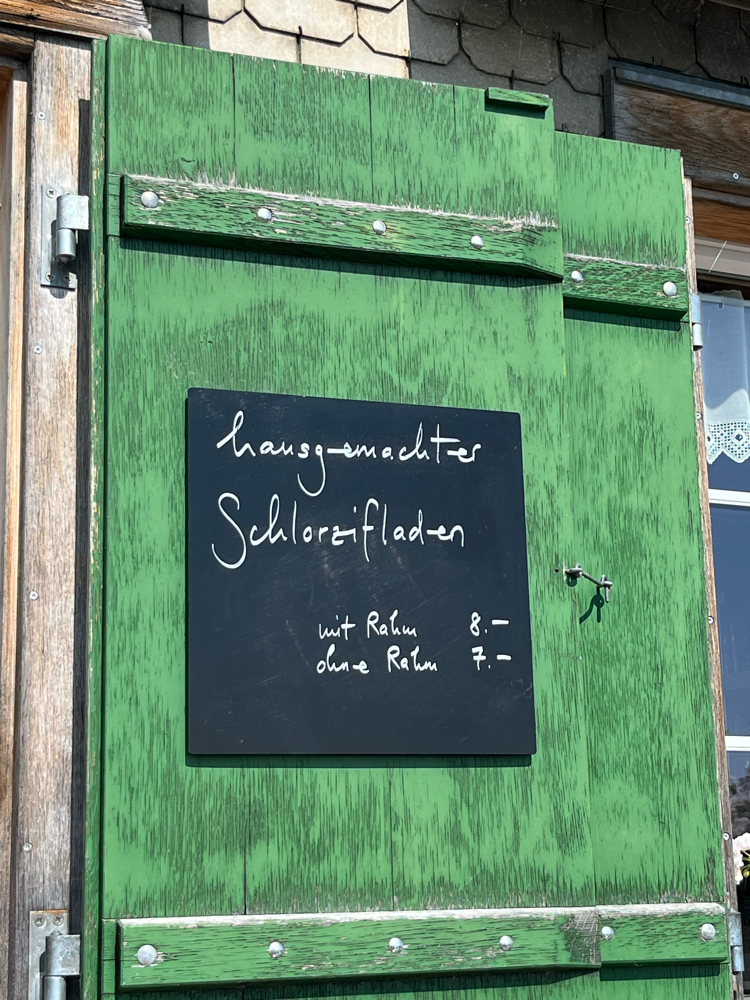 hausgemachter
Schlorzifladen
mit Rahm 8.-
ohne Rahm 7.-